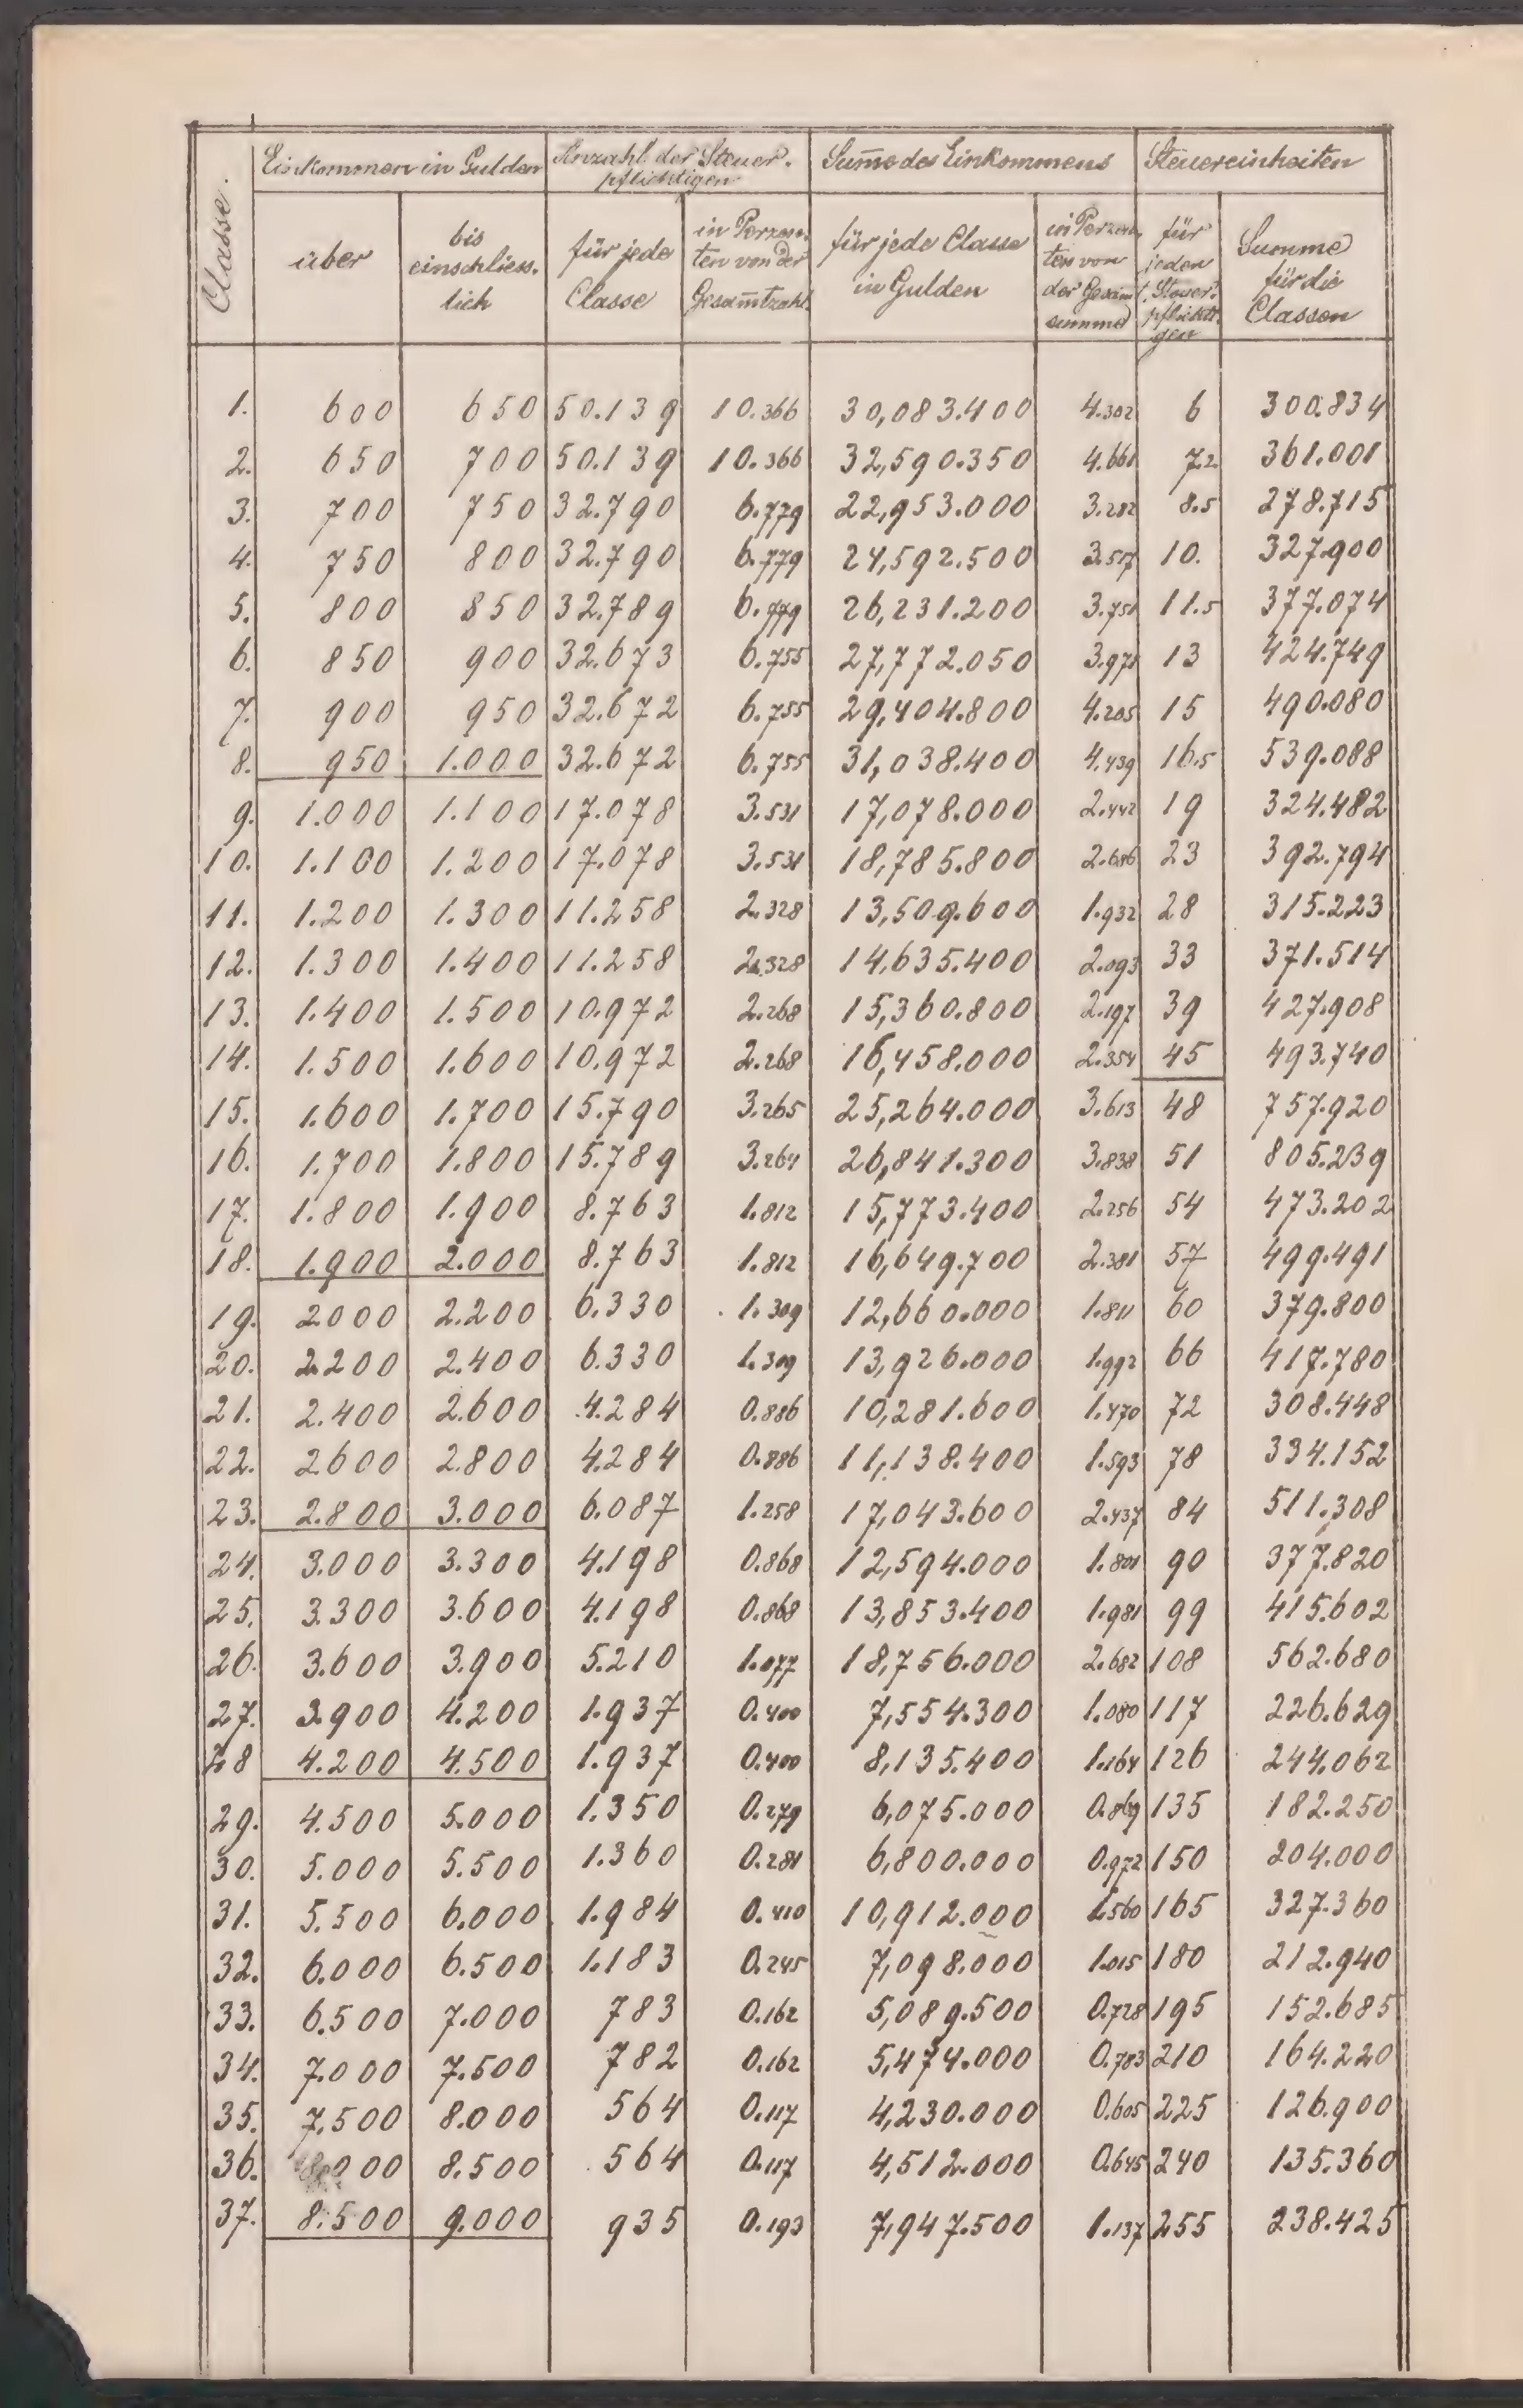 Classe.
Einkommen in Gulden Anzahl der Steuer- Summe des Einkommens Steuereinheiten
pflichtigen
über bis einschliess- lich für jede Classe in Perzen- ten von der Gesam̅tzahl für jede Classe in Gulden in Perzen- ten von der Gesam̅t summe für jeden Steuer- pflichti- gen Summe für die Classen
1. 600 650 50.139 10.366 30,083.400 4.302 6 300.834
2. 650 700 50.139 10.366 32,590.350 4.661 7.2 361.001
3. 700 750 32.790 6.779 22,953.000 3.282 8.5 278.715
4. 750 800 32.790 6.779 24,592.500 3.517 10. 327.900
5. 800 850 32.789 6.779 26,231.200 3.751 11.5 377.074
6. 850 900 32.673 6.755 27,772.050 3.971 13 424.749
7. 900 950 32.672 6.755 29,404.800 4.205 15 490.080
8. 950 1.000 32.672 6.755 31,038.400 4.439 16.5 539.088
9. 1.000 1.100 17.078 3.531 17,078.000 2.442 19 324.482
10. 1.100 1.200 17.078 3.531 18,785.800 2.686 23 392.794
11. 1.200 1.300 11.258 2.328 13,509.600 1.932 28 315.223
12. 1.300 1.400 11.258 2.328 14,635.400 2.093 33 371.514
13. 1.400 1.500 10.972 2.268 15,360.800 2.197 39 427.908
14. 1.500 1.600 10.972 2.268 16,458.000 2.354 45 493.740
15. 1.600 1.700 15.790 3.265 25,264.000 3.613 48 757.920
16. 1.700 1.800 15.789 3.264 26,841.300 3.838 51 805.239
17. 1.800 1.900 8.763 1.812 15,773.400 2.256 54 473.202
18. 1.900 2.000 8.763 1.812 16,649.700 2.381 57 499.491
19. 2.000 2.200 6.330 1.309 12,660.000 1.811 60 379.800
20. 2.200 2.400 6.330 1.309 13,926.000 1.992 66 417.780
21. 2.400 2.600 4.284 0.886 10,281.600 1.470 72 308.448
22. 2.600 2.800 4.284 0.886 11,138.400 1.593 78 334.152
23. 2.800 3.000 6.087 1.258 17,043.600 2.437 84 511.308
24. 3.000 3.300 4.198 0.868 12,594.000 1.801 90 377.820
25. 3.300 3.600 4.198 0.868 13,853.400 1.981 99 415.602
26. 3.600 3.900 5.210 1.077 18,756.000 2.682 108 562.680
27. 3.900 4.200 1.937 0.400 7,554.300 1.080 117 226.629
28 4.200 4.500 1.937 0.400 8,135.400 1.164 126 244.062
29. 4.500 5.000 1.350 0.279 6,075.000 0.869 135 182.250
30. 5.000 5.500 1.360 0.281 6,800.000 0.972 150 204.000
31. 5.500 6.000 1.984 0.410 10,912.000 1.560 165 327.360
32. 6.000 6.500 1.183 0.245 7,098.000 1.015 180 212.940
33. 6.500 7.000 783 0.162 5,089.500 0.728 195 152.685
34. 7.000 7.500 782 0.162 5,474.000 0.783 210 164.220
35. 7.500 8.000 564 0.117 4,230.000 0.605 225 126.900
36. 8.000 8.500 564 0.117 4,512.000 0.645 240 135.360
37. 8.500 9.000 935 0.193 7,947.500 1.137 255 238.425